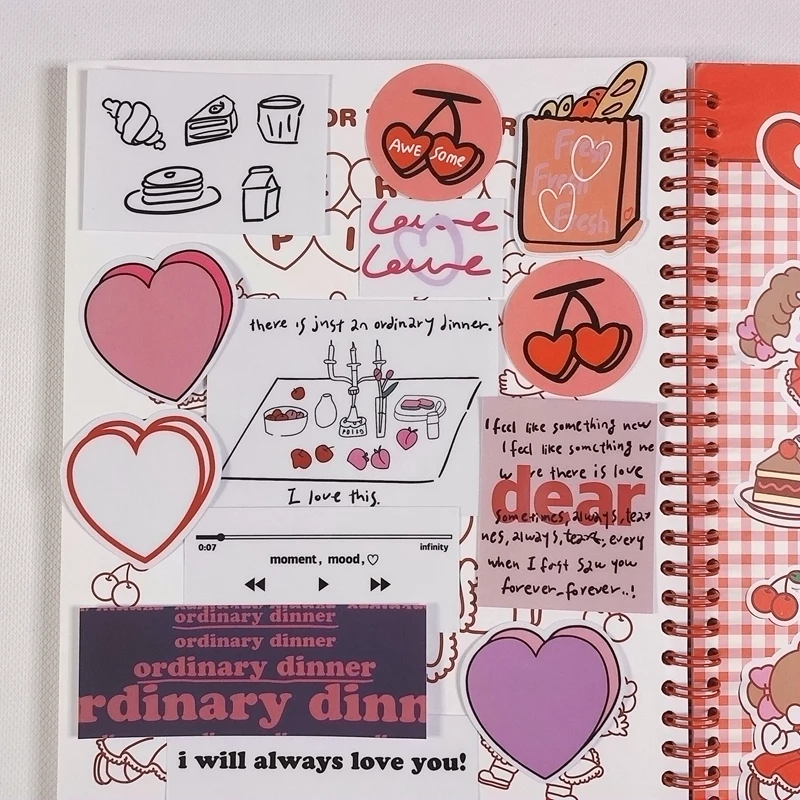 AWESOME
Fresh
Fresh
Fresh
Love
Love
there is just an ordinary dinner.
I love this.
I feel like something new
I feel like something ne
where there is love
dear
sometimes, always, tear
nes, always, tears, every
when I fast saw you
forever_forever..!
0:07
infinity
moment, mood,♡
ordinary dinner
ordinary dinner
ordinary dinner
rdinary dinn
i will always love you!